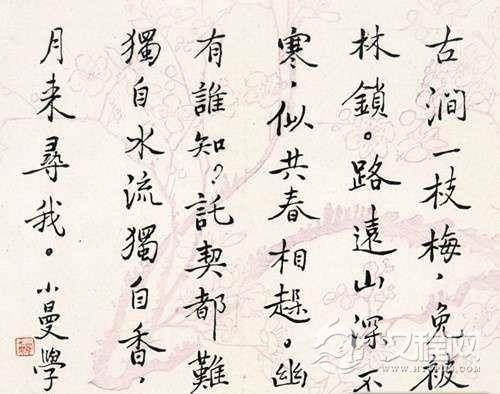 古澗一枝梅，免被
林鎖。路遠山深不
寒，似共春相趓。幽
有誰知？託契都難
獨自水流獨自香，
月来尋我。小曼學
汉程网